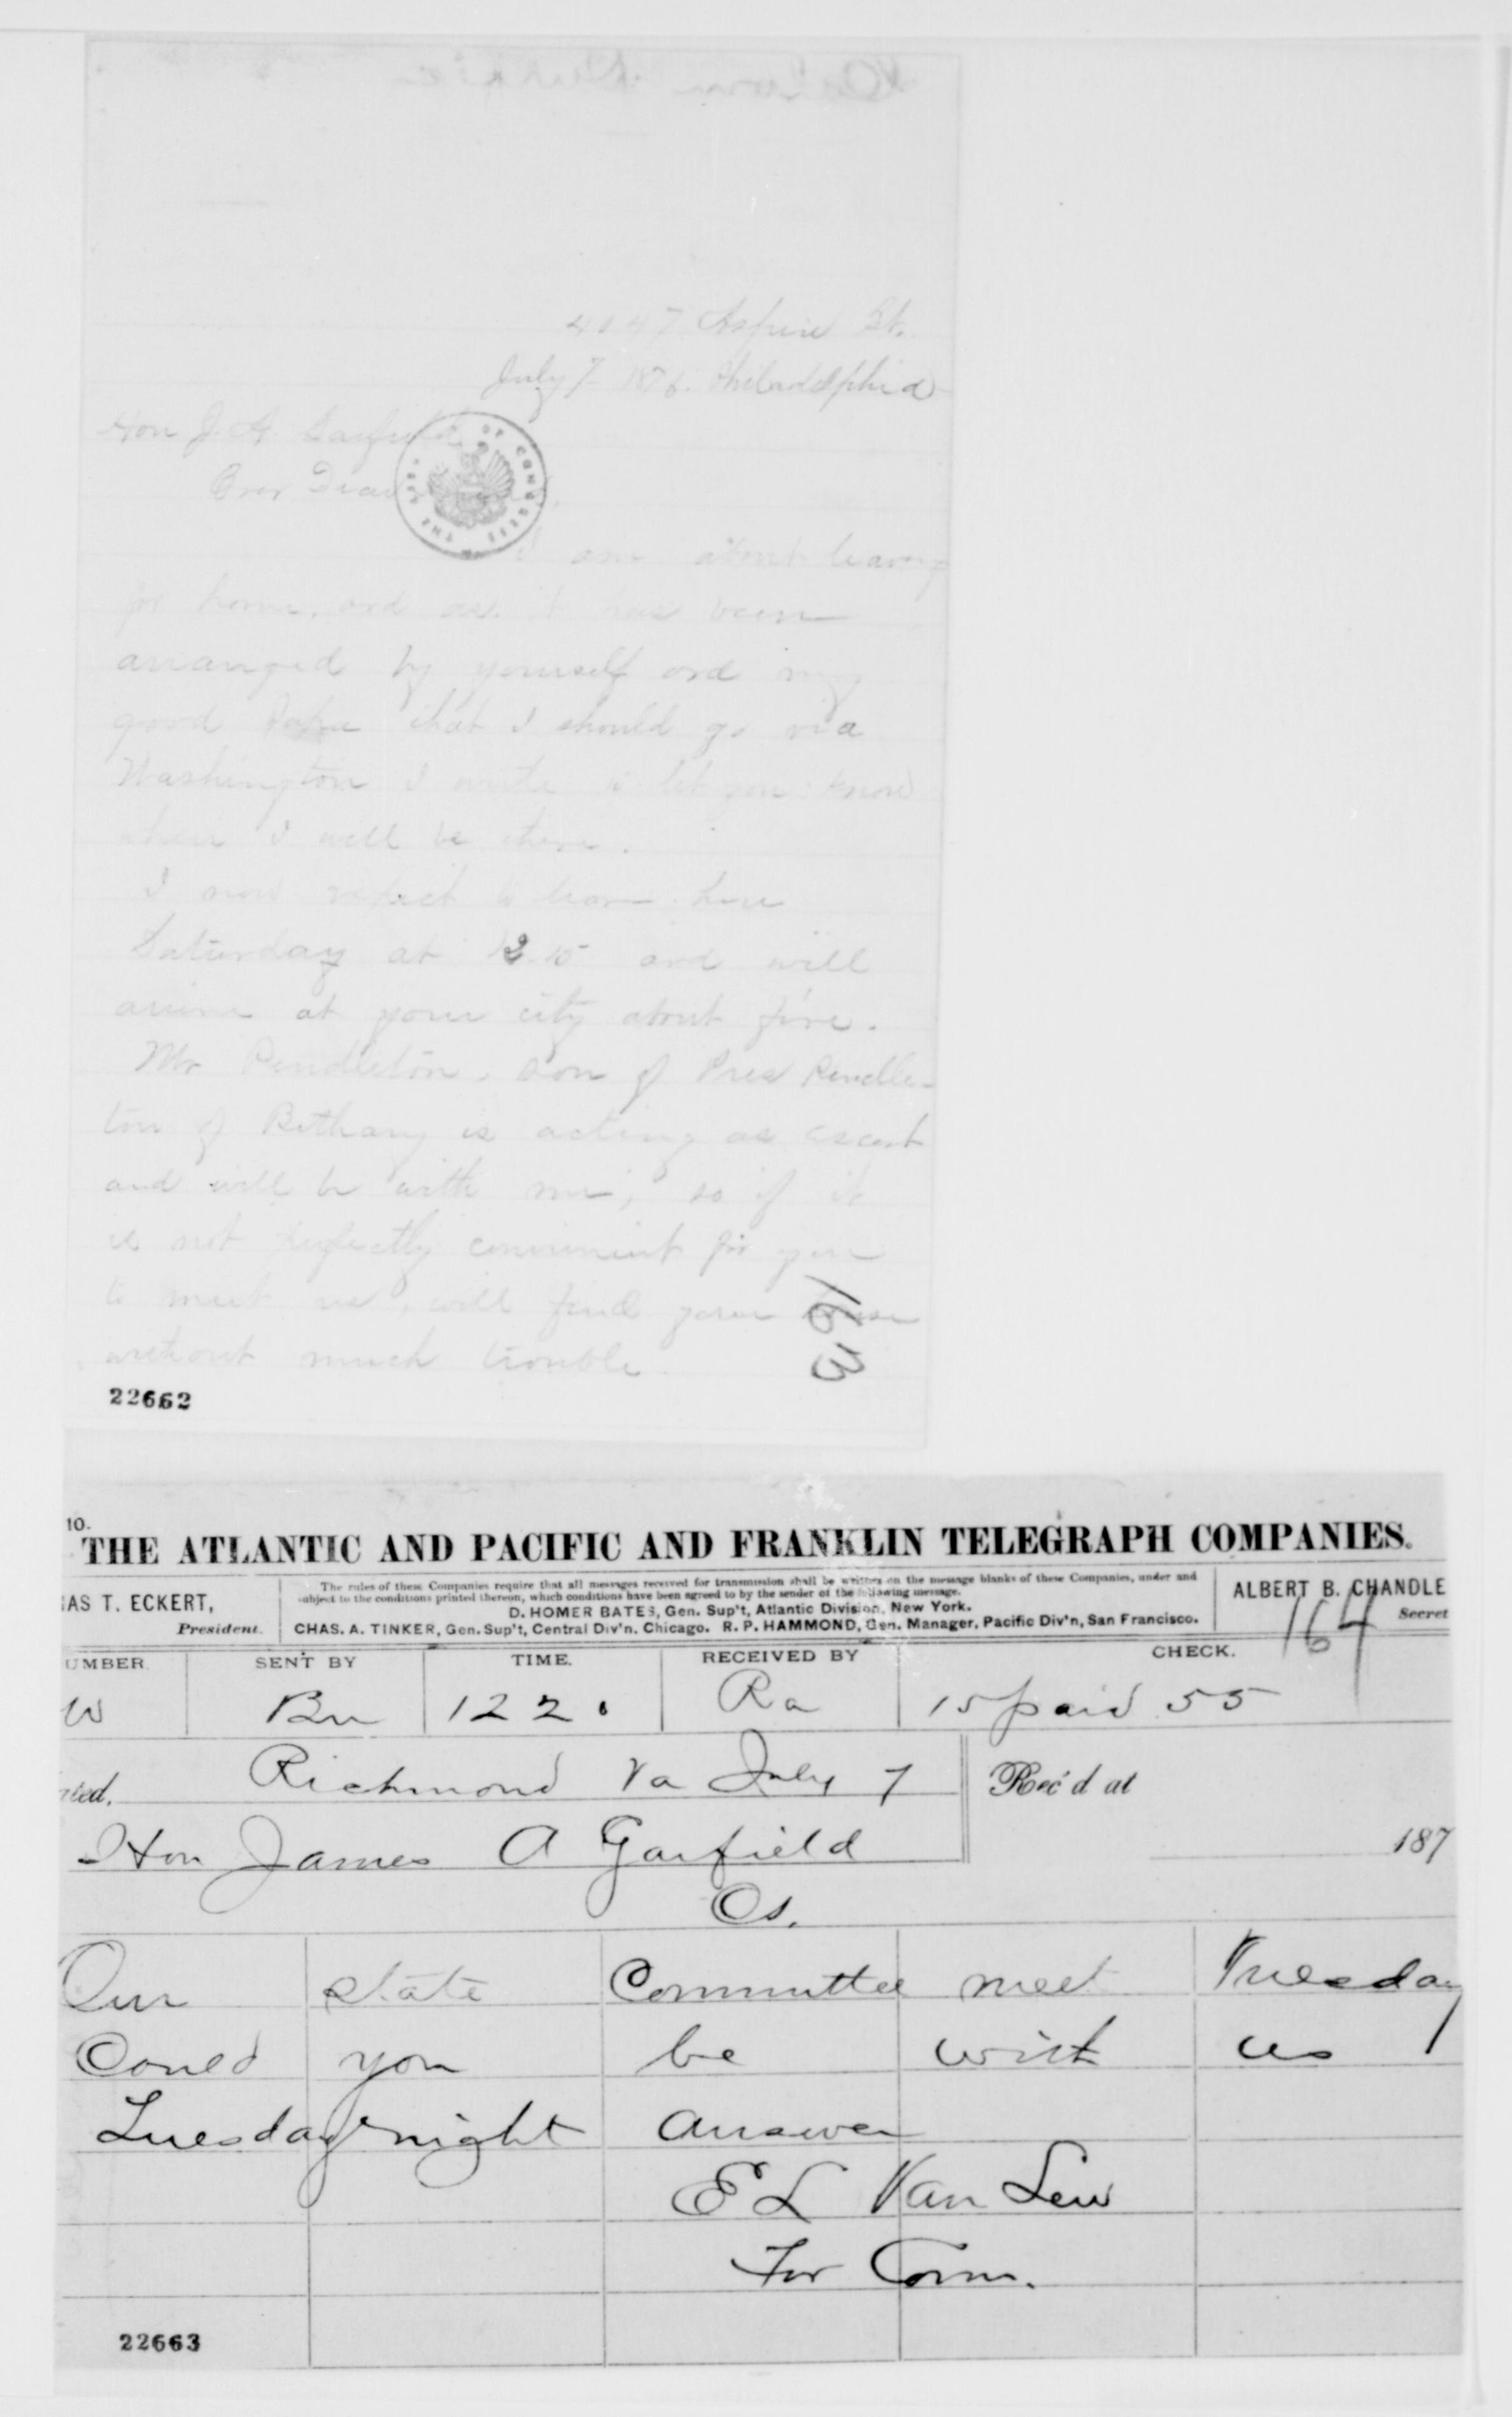 July 7 1876. Philadelphia
Hon J. A. Garfield
I am about leaving
for home, and as it has been
arranged by yourself and my
good Papa that I should go via
Washington I write to let you know
when I will be there.
I now expect to leave here
Saturday at and will
arrive at your city about five.
Mr Pendleton, son of Pres Pendle-
ton of Bethany is acting as escort
and will be with me, so if it
is not perfectly convenient for you
to meet us, will find your house
without much trouble.
163
22662
10.
THE ATLANTIC AND PACIFIC AND FRANKLIN TELEGRAPH COMPANIES.
HAS T. ECKERT,
President.
The rules of these Companies require that all messages received for transmission shall be written on the message blanks of these Companies, under and
subject to the conditions printed thereon, which conditions have been agreed to by the sender of the following message.
D. HOMER BATES, Gen. Sup't, Atlantic Division, New York.
CHAS. A. TINKER, Gen. Sup't, Central Div'n, Chicago. R. P. HAMMOND, Gen. Manager, Pacific Div'n, San Francisco.
ALBERT B. CHANDLE
Secret
164
UMBER SENT BY TIME. RECEIVED BY CHECK.
W Bu 1220 Ra 15 paid 55
ated, Richmond Va July 7 Rec'd at
Hon James A Garfield 187
Os.
Our state Committee meet Tuesday
Could you be with us
Tuesday night answer
E L Van Lew
For Com.
22663